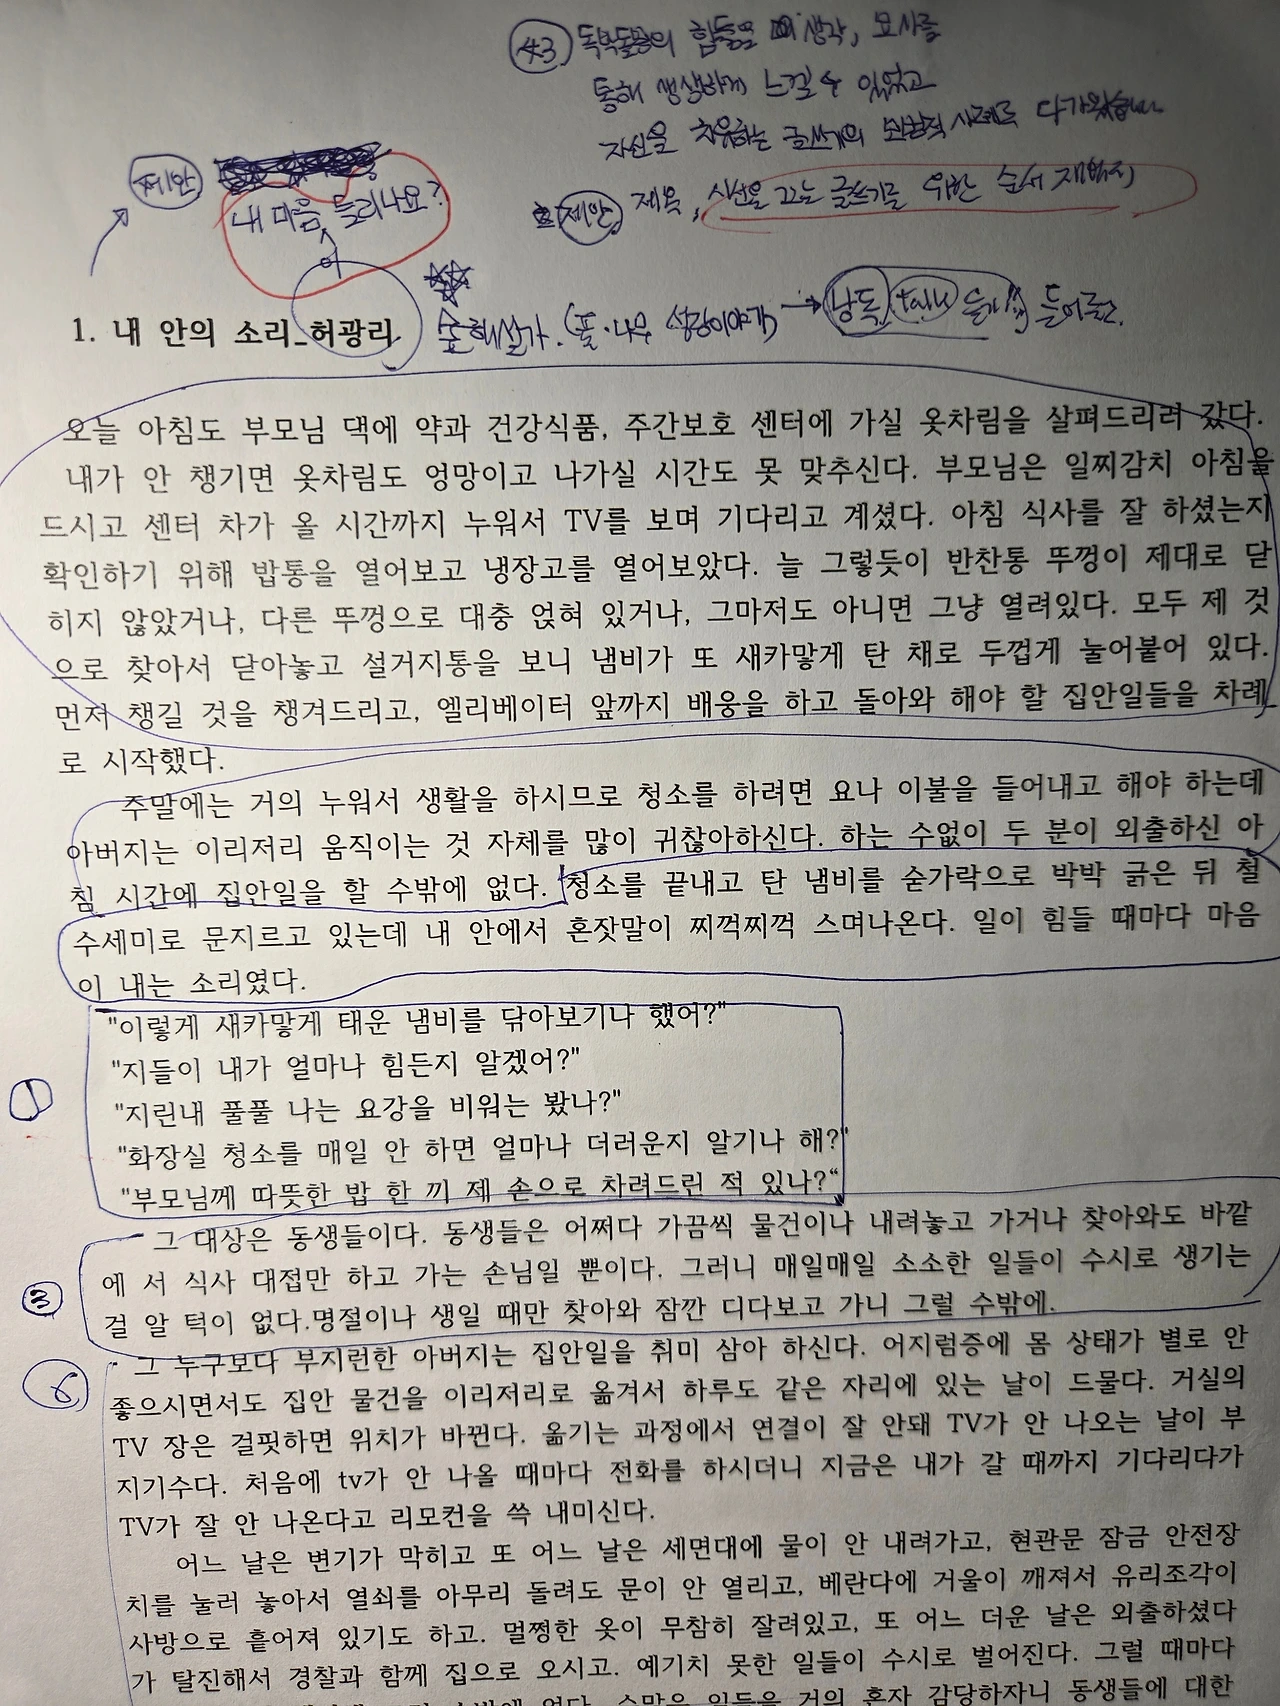 독박돌봄의 힘듦을 생각, 묘사를
통해 생생하게 느낄 수 있었고
자신을 치유하는 글쓰기의 사례로 다가왔습니다
제안
내 마음 들리나요?
제안 제목, 시선을 끄는 글쓰기를 위한 순서 재배치
숲해설가. (풀·나무 성장이야기) → 낭독 talk 들어주고.
1. 내 안의 소리_허광리
오늘 아침도 부모님 댁에 약과 건강식품, 주간보호 센터에 가실 옷차림을 살펴드리러 갔다.
내가 안 챙기면 옷차림도 엉망이고 나가실 시간도 못 맞추신다. 부모님은 일찌감치 아침을
드시고 센터 차가 올 시간까지 누워서 TV를 보며 기다리고 계셨다. 아침 식사를 잘 하셨는지
확인하기 위해 밥통을 열어보고 냉장고를 열어보았다. 늘 그렇듯이 반찬통 뚜껑이 제대로 닫
히지 않았거나, 다른 뚜껑으로 대충 얹혀 있거나, 그마저도 아니면 그냥 열려있다. 모두 제 것
으로 찾아서 닫아놓고 설거지통을 보니 냄비가 또 새카맣게 탄 채로 두껍게 눌어붙어 있다.
먼저 챙길 것을 챙겨드리고, 엘리베이터 앞까지 배웅을 하고 돌아와 해야 할 집안일들을 차례
로 시작했다.
주말에는 거의 누워서 생활을 하시므로 청소를 하려면 요나 이불을 들어내고 해야 하는데
아버지는 이리저리 움직이는 것 자체를 많이 귀찮아하신다. 하는 수없이 두 분이 외출하신 아
침 시간에 집안일을 할 수밖에 없다. 청소를 끝내고 탄 냄비를 숟가락으로 박박 긁은 뒤 철
수세미로 문지르고 있는데 내 안에서 혼잣말이 찌꺽찌꺽 스며나온다. 일이 힘들 때마다 마음
이 내는 소리였다.
"이렇게 새카맣게 태운 냄비를 닦아보기나 했어?"
"지들이 내가 얼마나 힘든지 알겠어?"
① "지린내 풀풀 나는 요강을 비워는 봤나?"
"화장실 청소를 매일 안 하면 얼마나 더러운지 알기나 해?"
"부모님께 따뜻한 밥 한 끼 제 손으로 차려드린 적 있나?"
그 대상은 동생들이다. 동생들은 어쩌다 가끔씩 물건이나 내려놓고 가거나 찾아와도 바깥
③ 에 서 식사 대접만 하고 가는 손님일 뿐이다. 그러니 매일매일 소소한 일들이 수시로 생기는
걸 알 턱이 없다.명절이나 생일 때만 찾아와 잠깐 디다보고 가니 그럴 수밖에.
그 누구보다 부지런한 아버지는 집안일을 취미 삼아 하신다. 어지럼증에 몸 상태가 별로 안
좋으시면서도 집안 물건을 이리저리로 옮겨서 하루도 같은 자리에 있는 날이 드물다. 거실의
TV 장은 걸핏하면 위치가 바뀐다. 옮기는 과정에서 연결이 잘 안돼 TV가 안 나오는 날이 부
지기수다. 처음에 tv가 안 나올 때마다 전화를 하시더니 지금은 내가 갈 때까지 기다리다가
TV가 잘 안 나온다고 리모컨을 쓱 내미신다.
어느 날은 변기가 막히고 또 어느 날은 세면대에 물이 안 내려가고, 현관문 잠금 안전장
치를 눌러 놓아서 열쇠를 아무리 돌려도 문이 안 열리고, 베란다에 거울이 깨져서 유리조각이
사방으로 흩어져 있기도 하고. 멀쩡한 옷이 무참히 잘려있고, 또 어느 더운 날은 외출하셨다
가 탈진해서 경찰과 함께 집으로 오시고. 예기치 못한 일들이 수시로 벌어진다. 그럴 때마다
없다. 수많은 일들을 거의 혼자 감당하자니 동생들에 대한